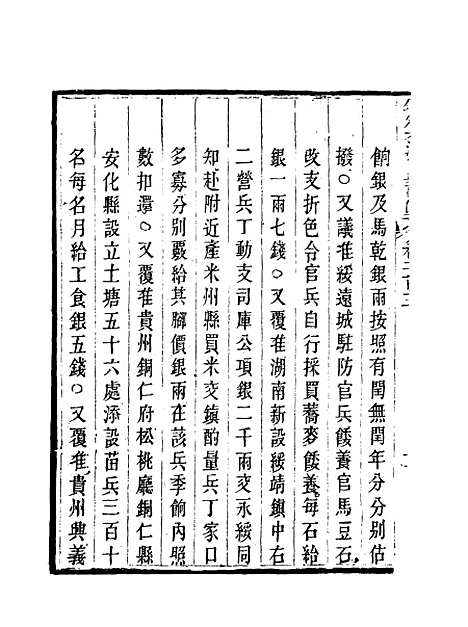 餉銀及馬乾銀兩按照有閏無閏年分分別估
撥○又議准綏遠城駐防官兵餧養官馬豆石
改支折色令官兵自行採買蕎麥餧養每石給
銀一兩七錢○又覆准湖南新設綏靖鎮中右
二營兵丁動支司庫公項銀二千兩交永綏同
知赴附近產米州縣買米交鎮酌量兵丁家口
多寡分別覈給其腳價銀兩在該兵季餉內照
數扣還○又覆准貴州銅仁府松桃廳銅仁縣
安化縣設立土塘五十六處添設苗兵三百十
名每名月給工食銀五錢○又覆准貴州興義